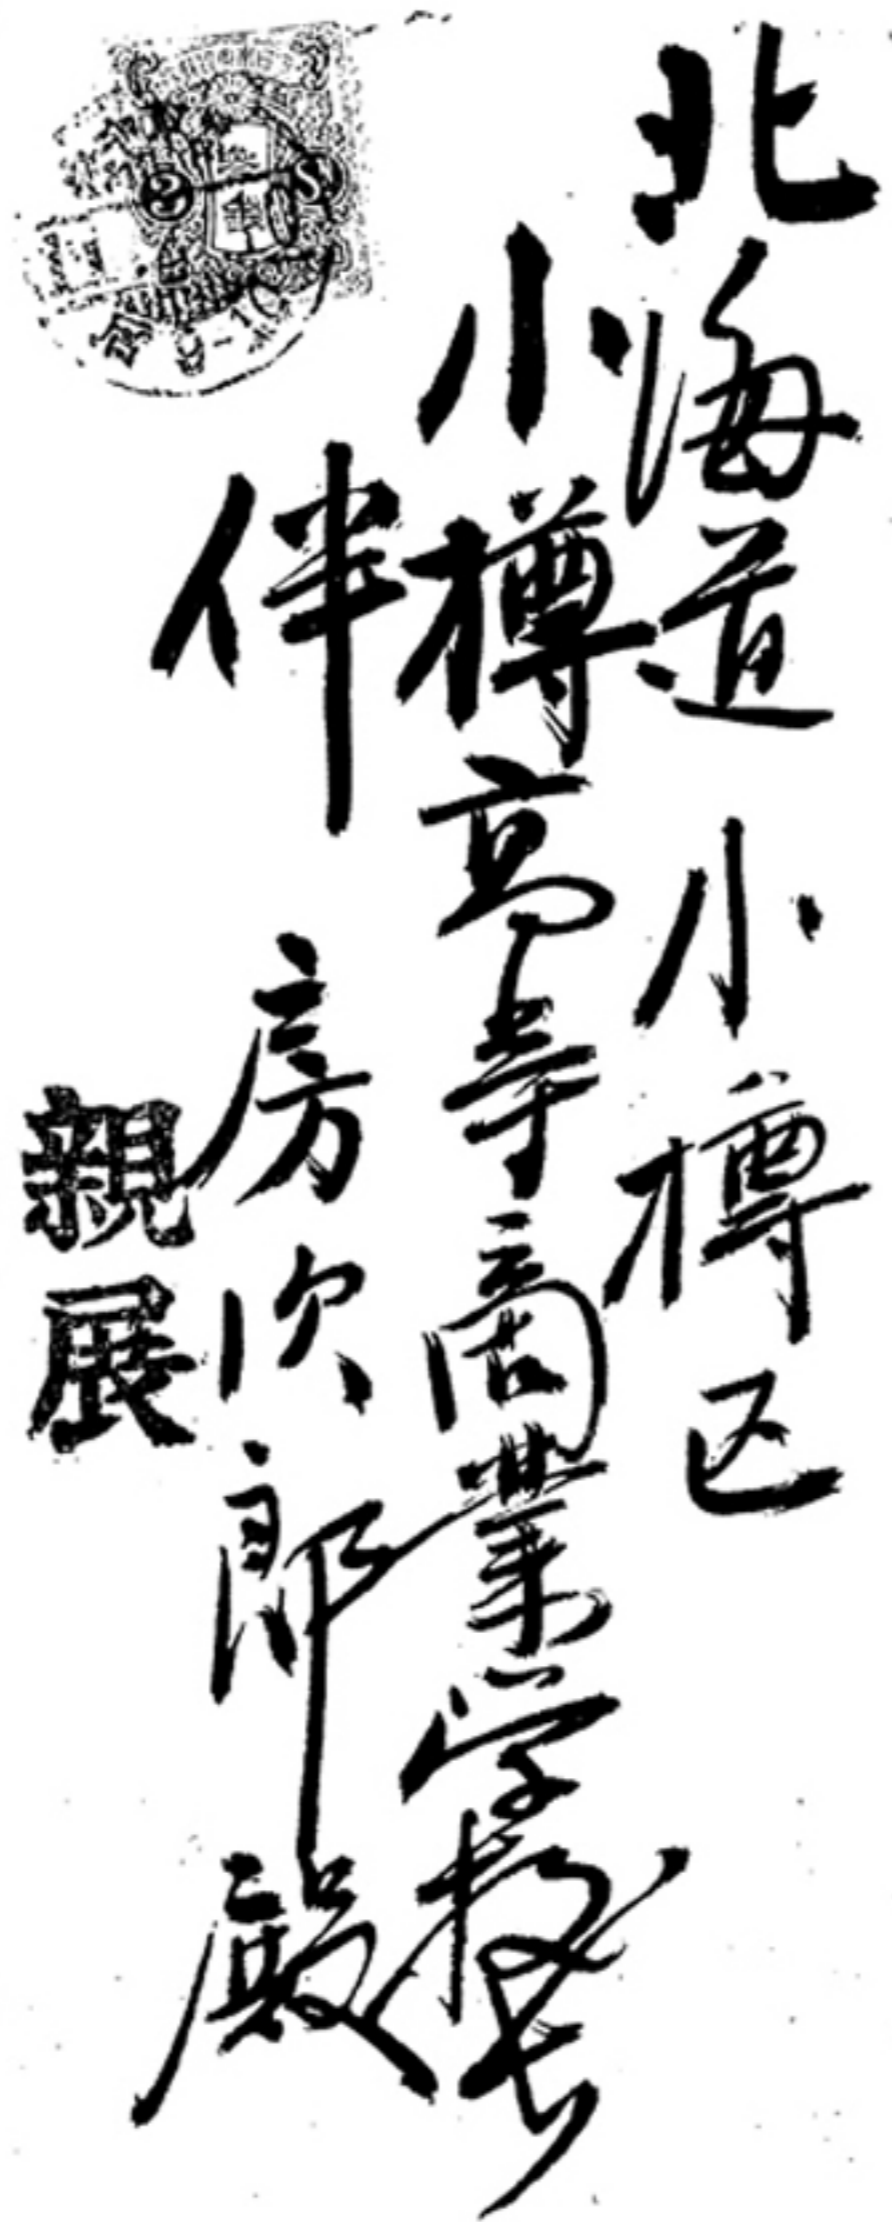 北海道小樽区
小樽高等商業学校長
伴房次郎殿
親展